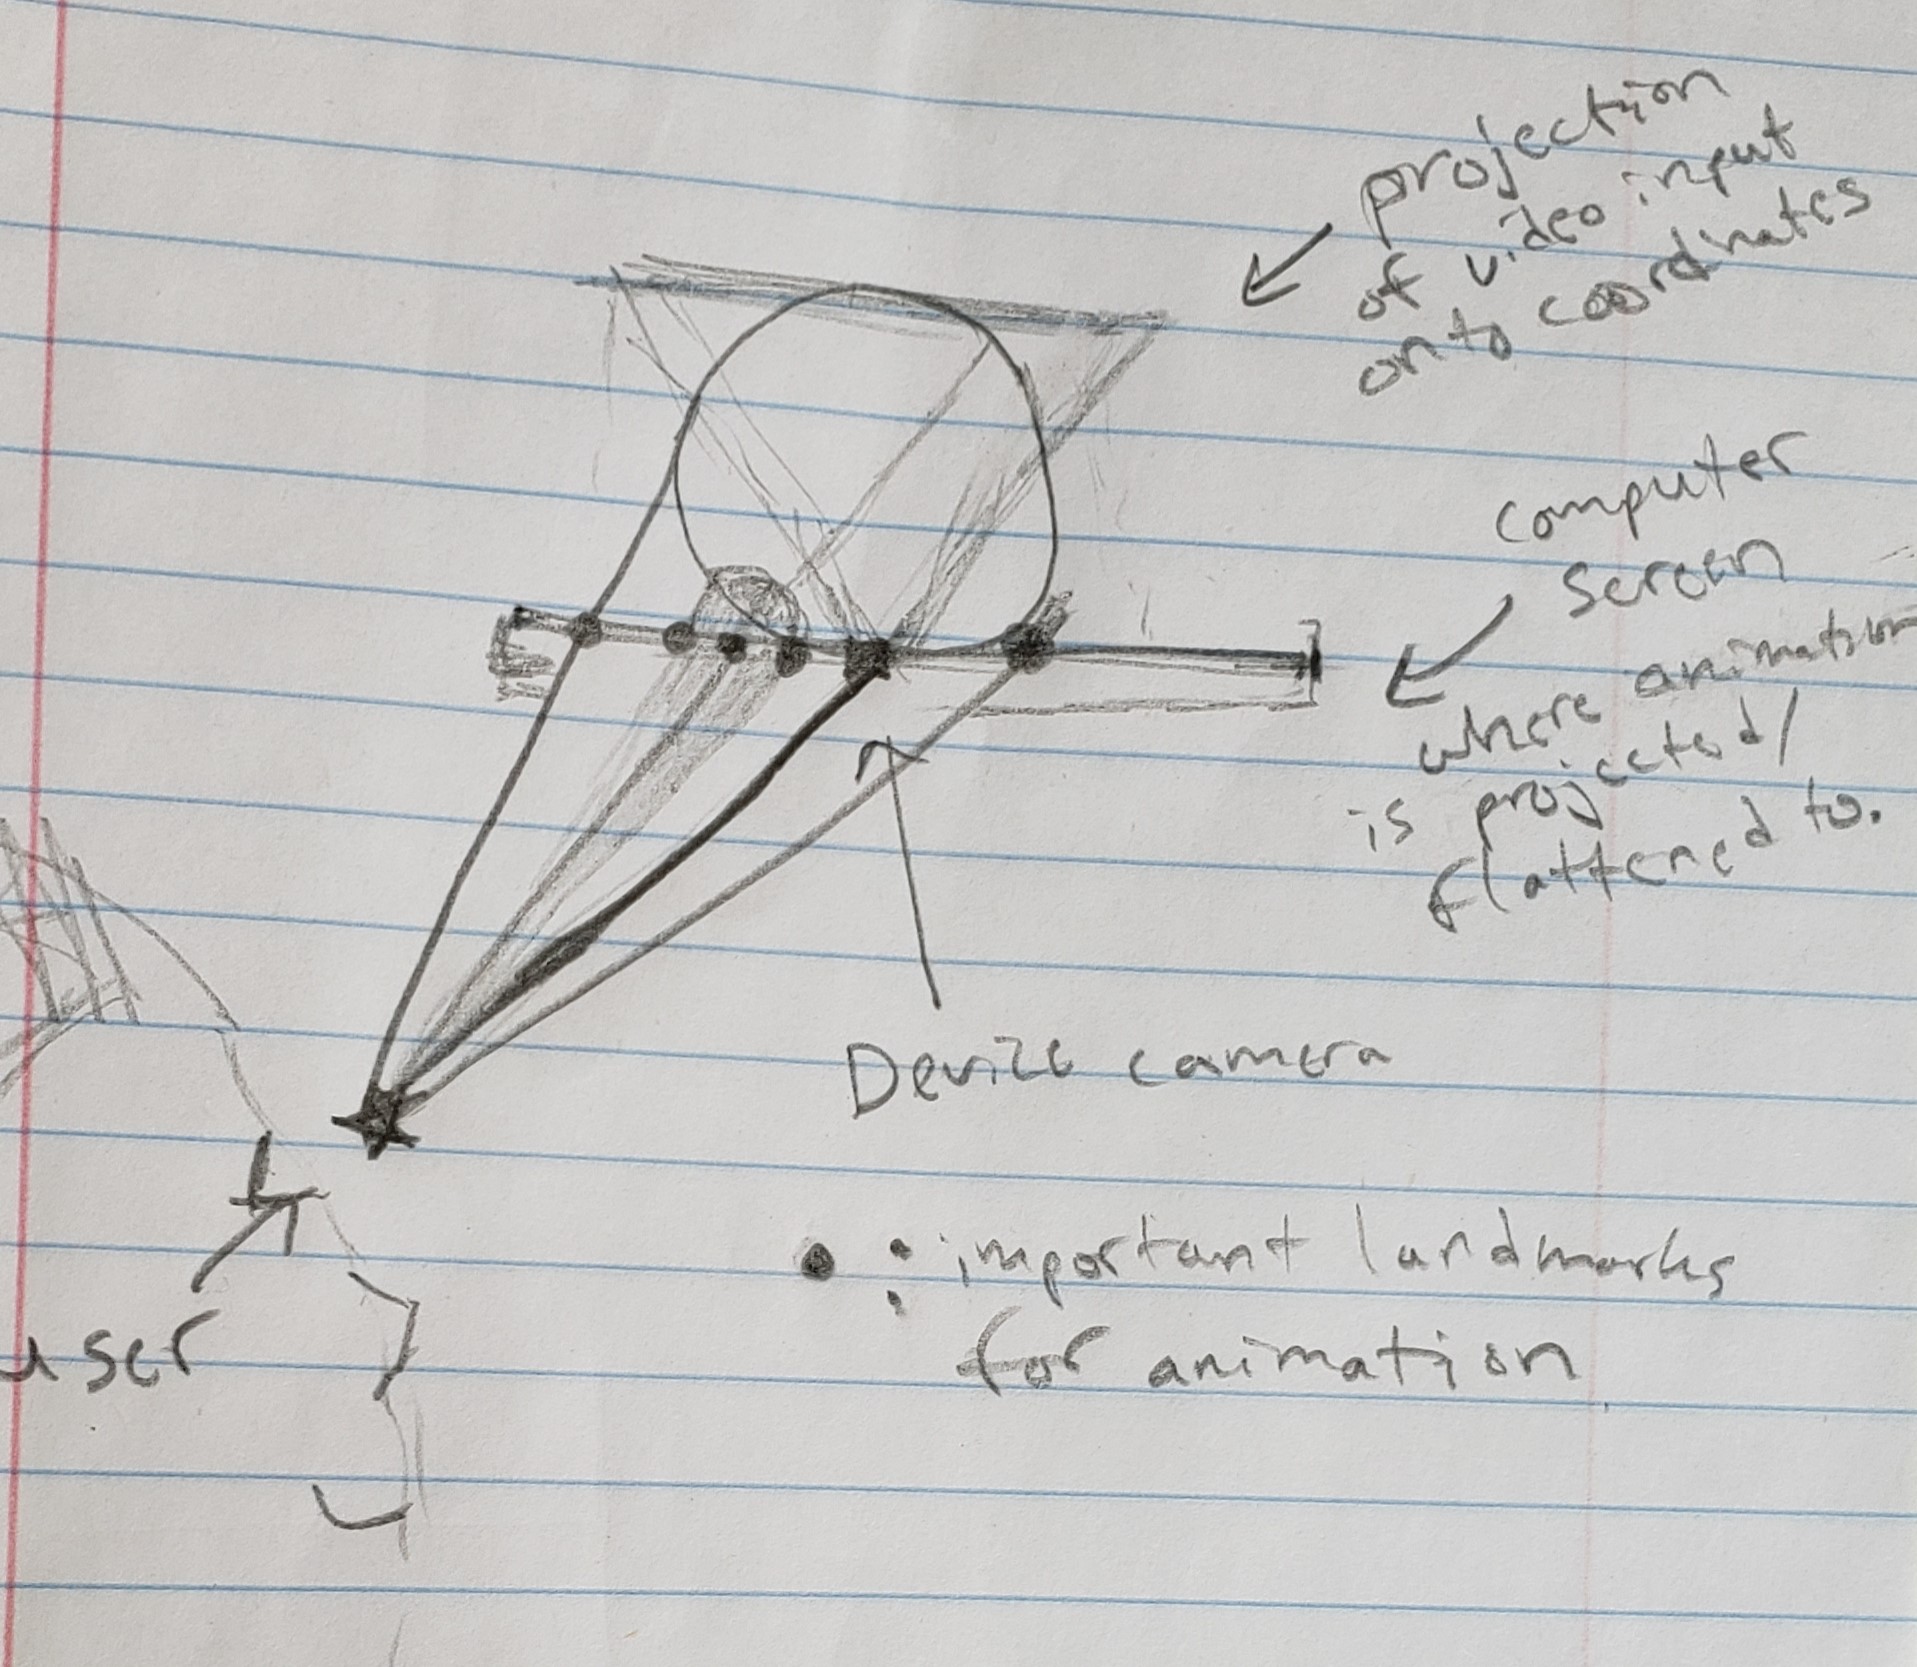 projection
of video input
onto coordinates
computer
screen
where animation
is projected/
flattened to.
Device camera
: important landmarks
for animation
user